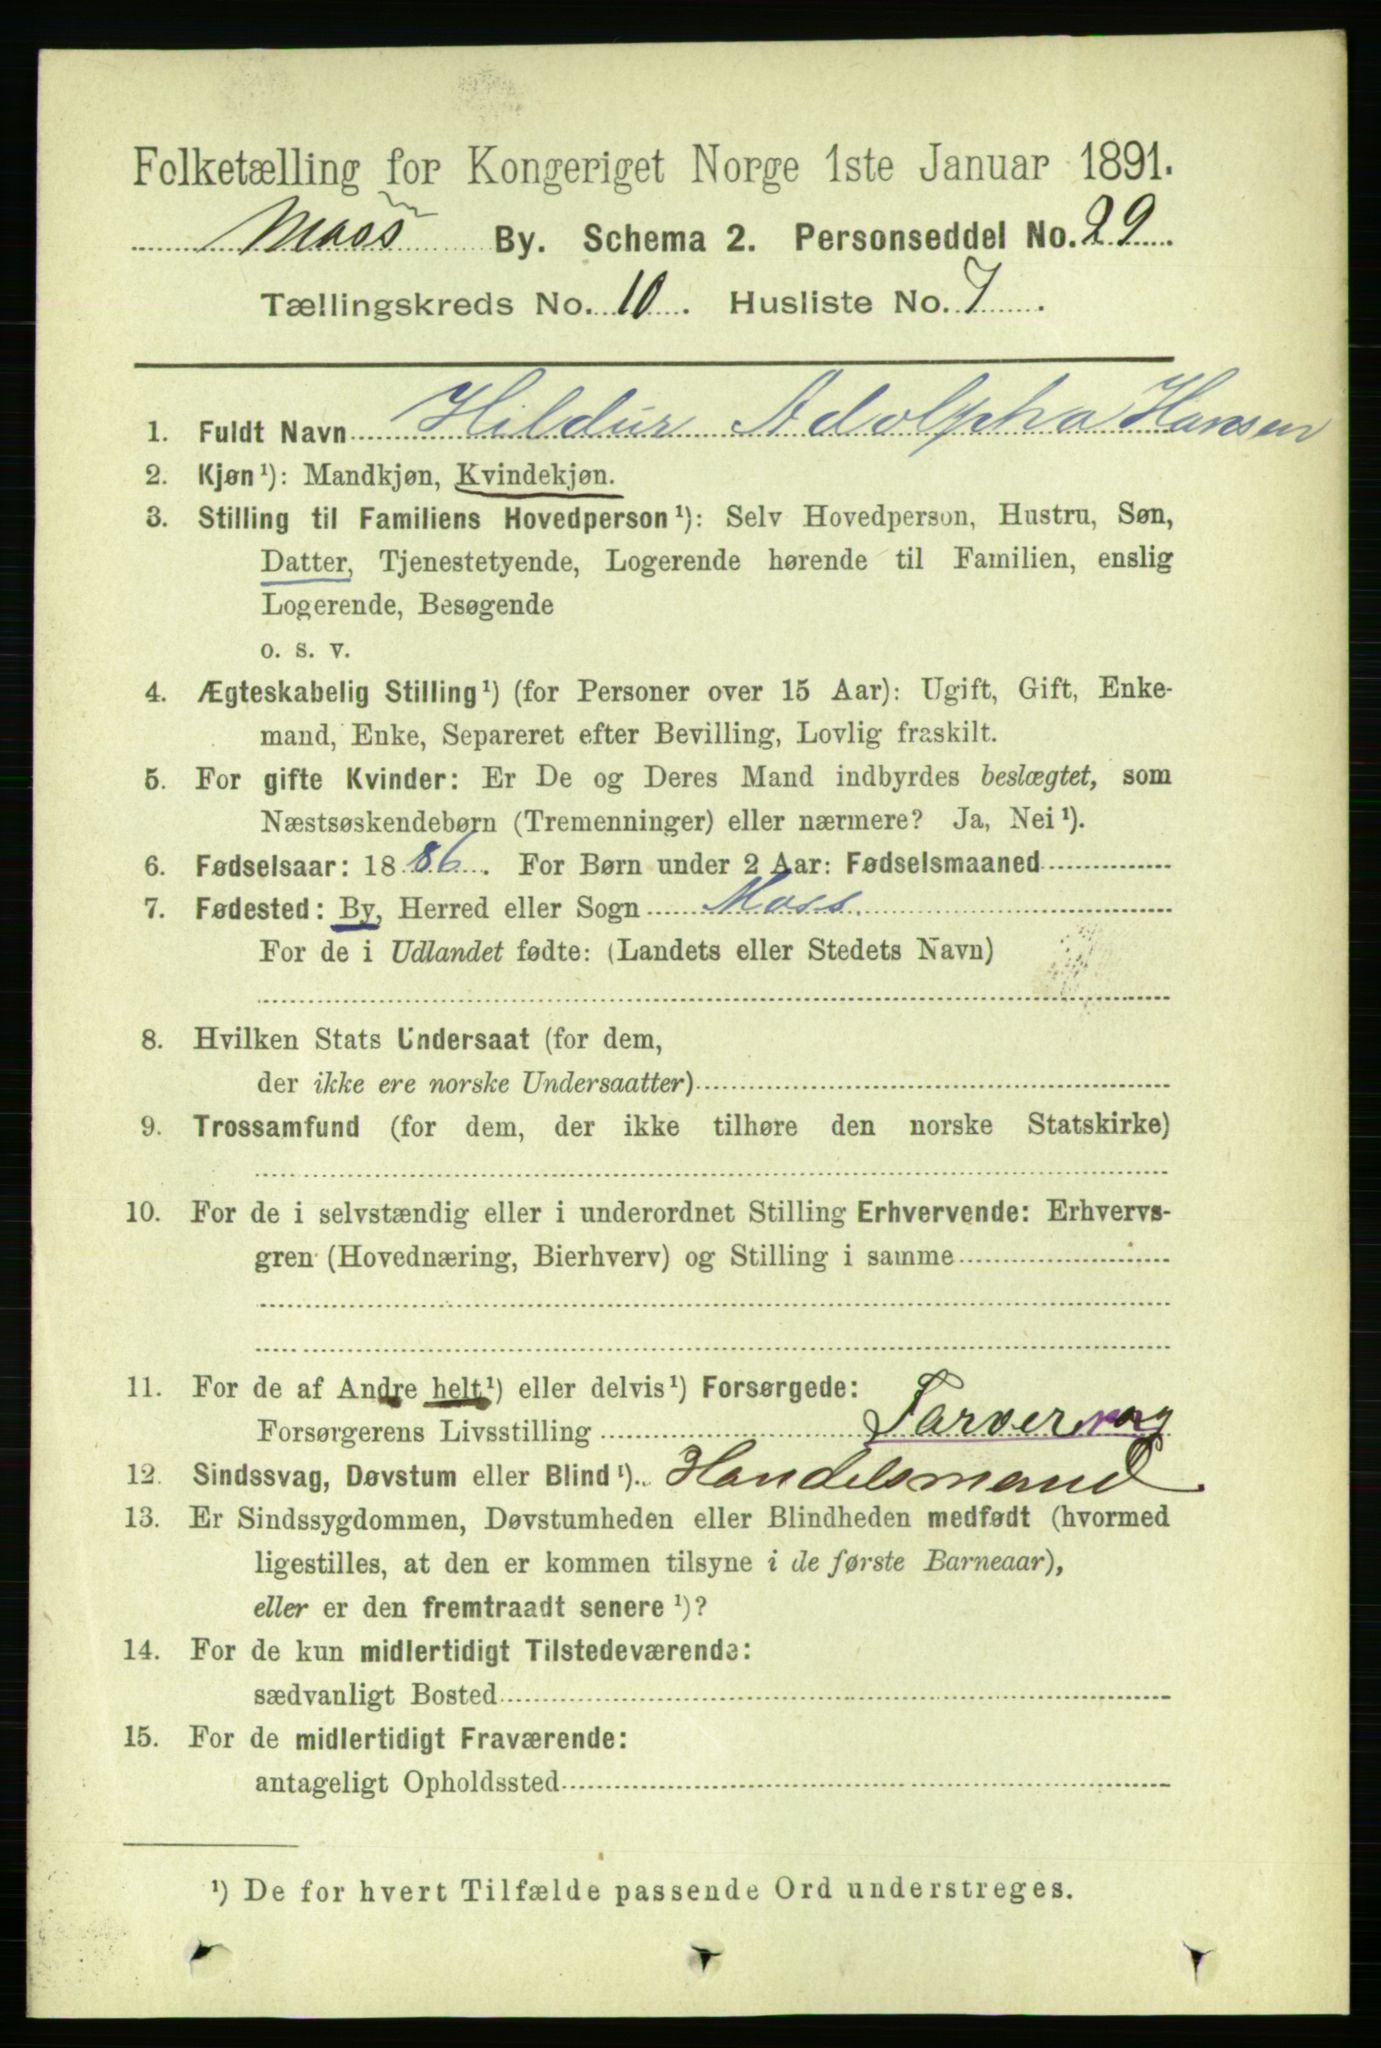 Folketælling for Kongeriget Norge 1ste Januar 1891.
Moss By. Schema 2. Personseddel No. 29.
Tællingskreds No. 10. Husliste No. 7.
1. Fuldt Navn Hildur Adolpha Hansen
2. Kjøn¹): Mandkjøn, Kvindekjøn.
3. Stilling til Familiens Hovedperson¹): Selv Hovedperson, Hustru, Søn,
Datter, Tjenestetyende, Logerende hørende til Familien, enslig
Logerende, Besøgende
o. s. v.
4. Ægteskabelig Stilling¹) (for Personer over 15 Aar): Ugift, Gift, Enke-
mand, Enke, Separeret efter Bevilling, Lovlig fraskilt.
5. For gifte Kvinder: Er De og Deres Mand indbyrdes beslægtet, som
Næstsøskendebørn (Tremenninger) eller nærmere? Ja, Nei¹).
6. Fødselsaar: 1886. For Børn under 2 Aar: Fødselsmaaned
7. Fødested: By, Herred eller Sogn Moss
For de i Udlandet fødte: (Landets eller Stedets Navn)
8. Hvilken Stats Undersaat (for dem,
der ikke ere norske Undersaatter)
9. Trossamfund (for dem, der ikke tilhøre den norske Statskirke)
10. For de i selvstændig eller i underordnet Stilling Erhvervende: Erhvervs-
gren (Hovednæring, Bierhverv) og Stilling i samme
11. For de af Andre helt¹) eller delvis¹) Forsørgede:
Forsørgerens Livsstilling Farver og
12. Sindssvag, Døvstum eller Blind¹). Handelsmand
13. Er Sindssygdommen, Døvstumheden eller Blindheden medfødt (hvormed
ligestilles, at den er kommen tilsyne i de første Barneaar),
eller er den fremtraadt senere¹)?
14. For de kun midlertidigt Tilstedeværende:
sædvanligt Bosted
15. For de midlertidigt Fraværende:
antageligt Opholdssted
¹) De for hvert Tilfælde passende Ord understreges.